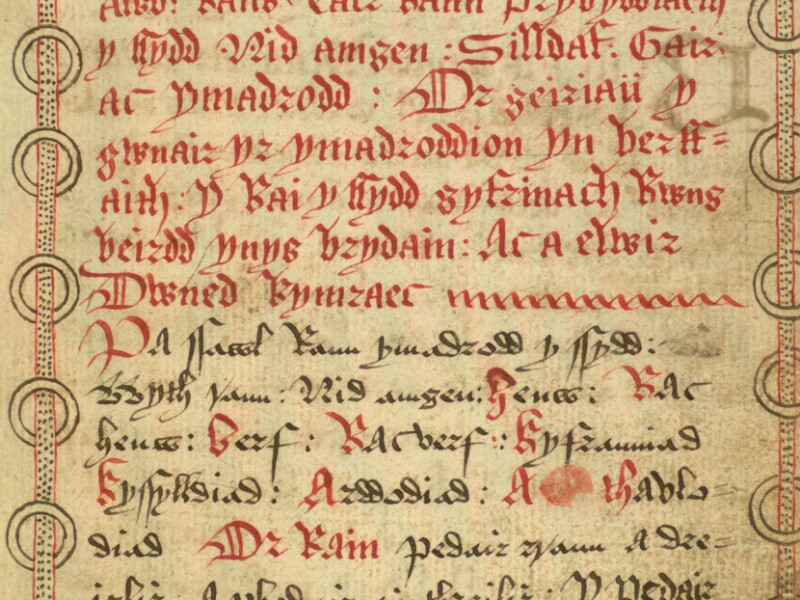 y ssydd Nid amgen : Silldaf. Gair
ac ymadrodd : Or geiriaü y
gwnair yr ymadroddion yn berff=
aith: Y Rai y ssydd gyfrinach Rwng
beirdd ynys brydain: Ac a elwir
Dwned kymraec
Pa ssawl Rann ymadrodd y ssydd:
Wyth rann: Nid amgen: henw: Rac
henw: berf: Rac verf: kyfranniad
kyssylldiad: Arddodiad: A thavlo=
diad Or Rain pedair rrann a dre=